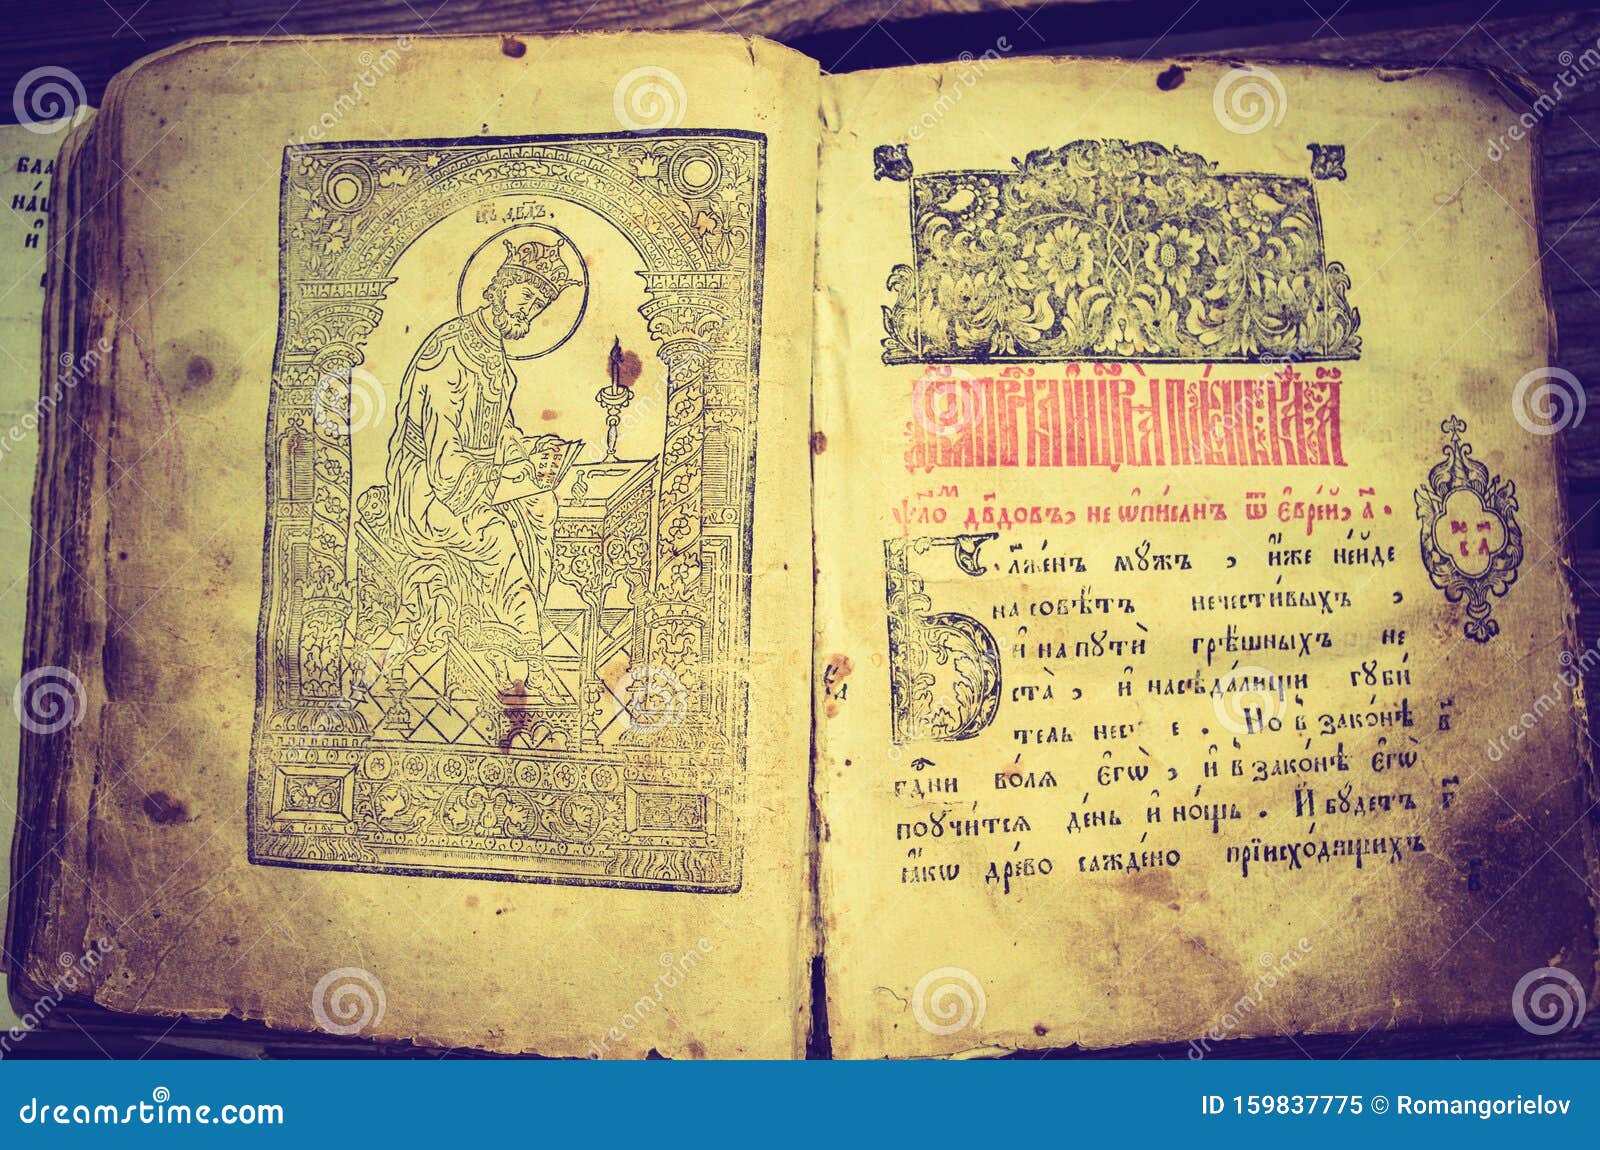 БЛА
НА́Ш
И҆
ЦР҃Ь ДВ҃ДЪ.
Ѱл҃о́м дв҃довъ, не ѡ҆пи́санъ ѿ є҆врє́й, а҃.
Бл҃же́нъ мꙋ́жъ, и҆́же не́и́де
на совѣ́тъ нечести́выхъ,
и҆ на пꙋти̑ грѣ́шныхъ не
ста̀, и҆ на сѣда́лищи гꙋби́
тель не сѣ́де. Но в̾ зако́нѣ
гд҇ни во́лѧ є҆гѡ̀, и҆ в̾ зако́нѣ є҆гѡ̀
поꙋчи́тсѧ де́нь и҆ но́щь. И҆ бꙋ́детъ
ꙗ҆́кѡ дре́во сажде́но при исхо́дѧщихъ
в҃
г҃
dreamstime.com
ID 159837775 © Romangorielov